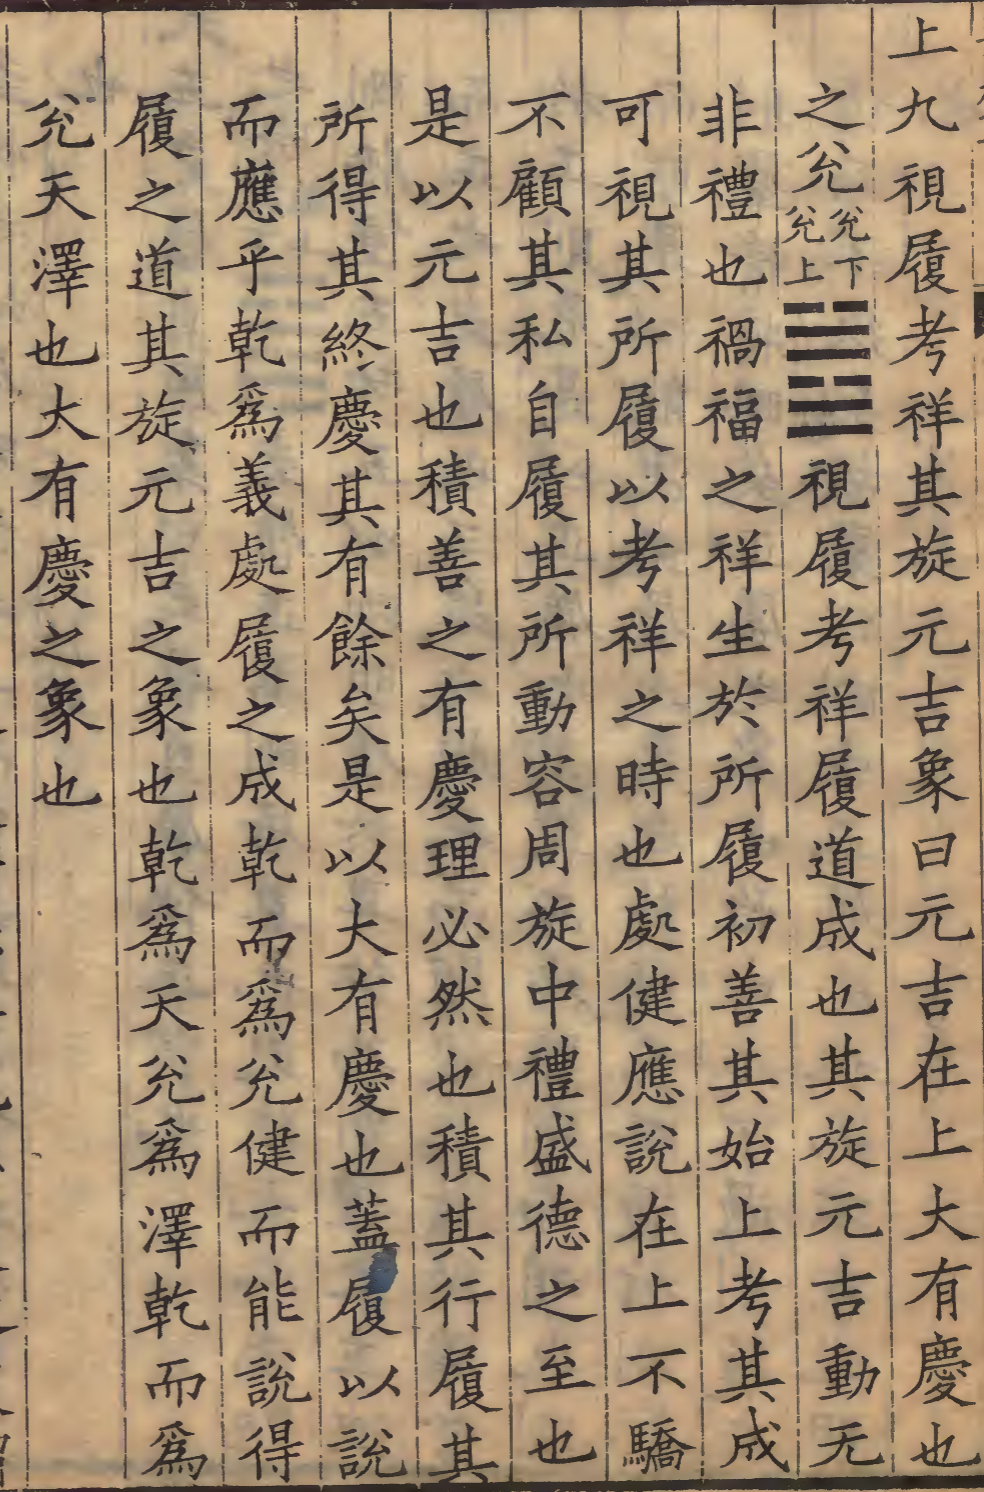 上九視履考祥其旋元吉象曰元吉在上大有慶也
之兊兊下兊上視履考祥履道成也其旋元吉動无
非禮也禍福之祥生於所履初善其始上考其成
可視其所履以考祥之時也處健應說在上不驕
不顧其私自履其所動容周旋中禮盛德之至也
是以元吉也積善之有慶理必然也積其行履其
所得其終慶其有餘矣是以大有慶也蓋履以說
而應乎乾爲義處履之成乾而爲兊健而能說得
履之道其旋元吉之象也乾爲天兊爲澤乾而爲
兊天澤也大有慶之象也